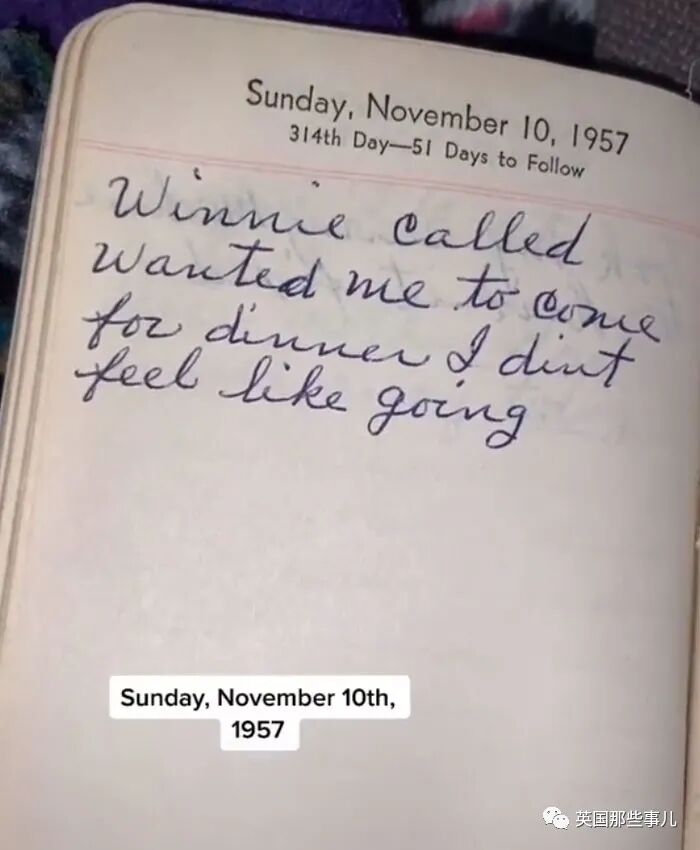 Sunday, November 10, 1957
314th Day—51 Days to Follow
Winnie called
wanted me to come
for dinner I dint
feel like going
Sunday, November 10th,
1957
英国那些事儿